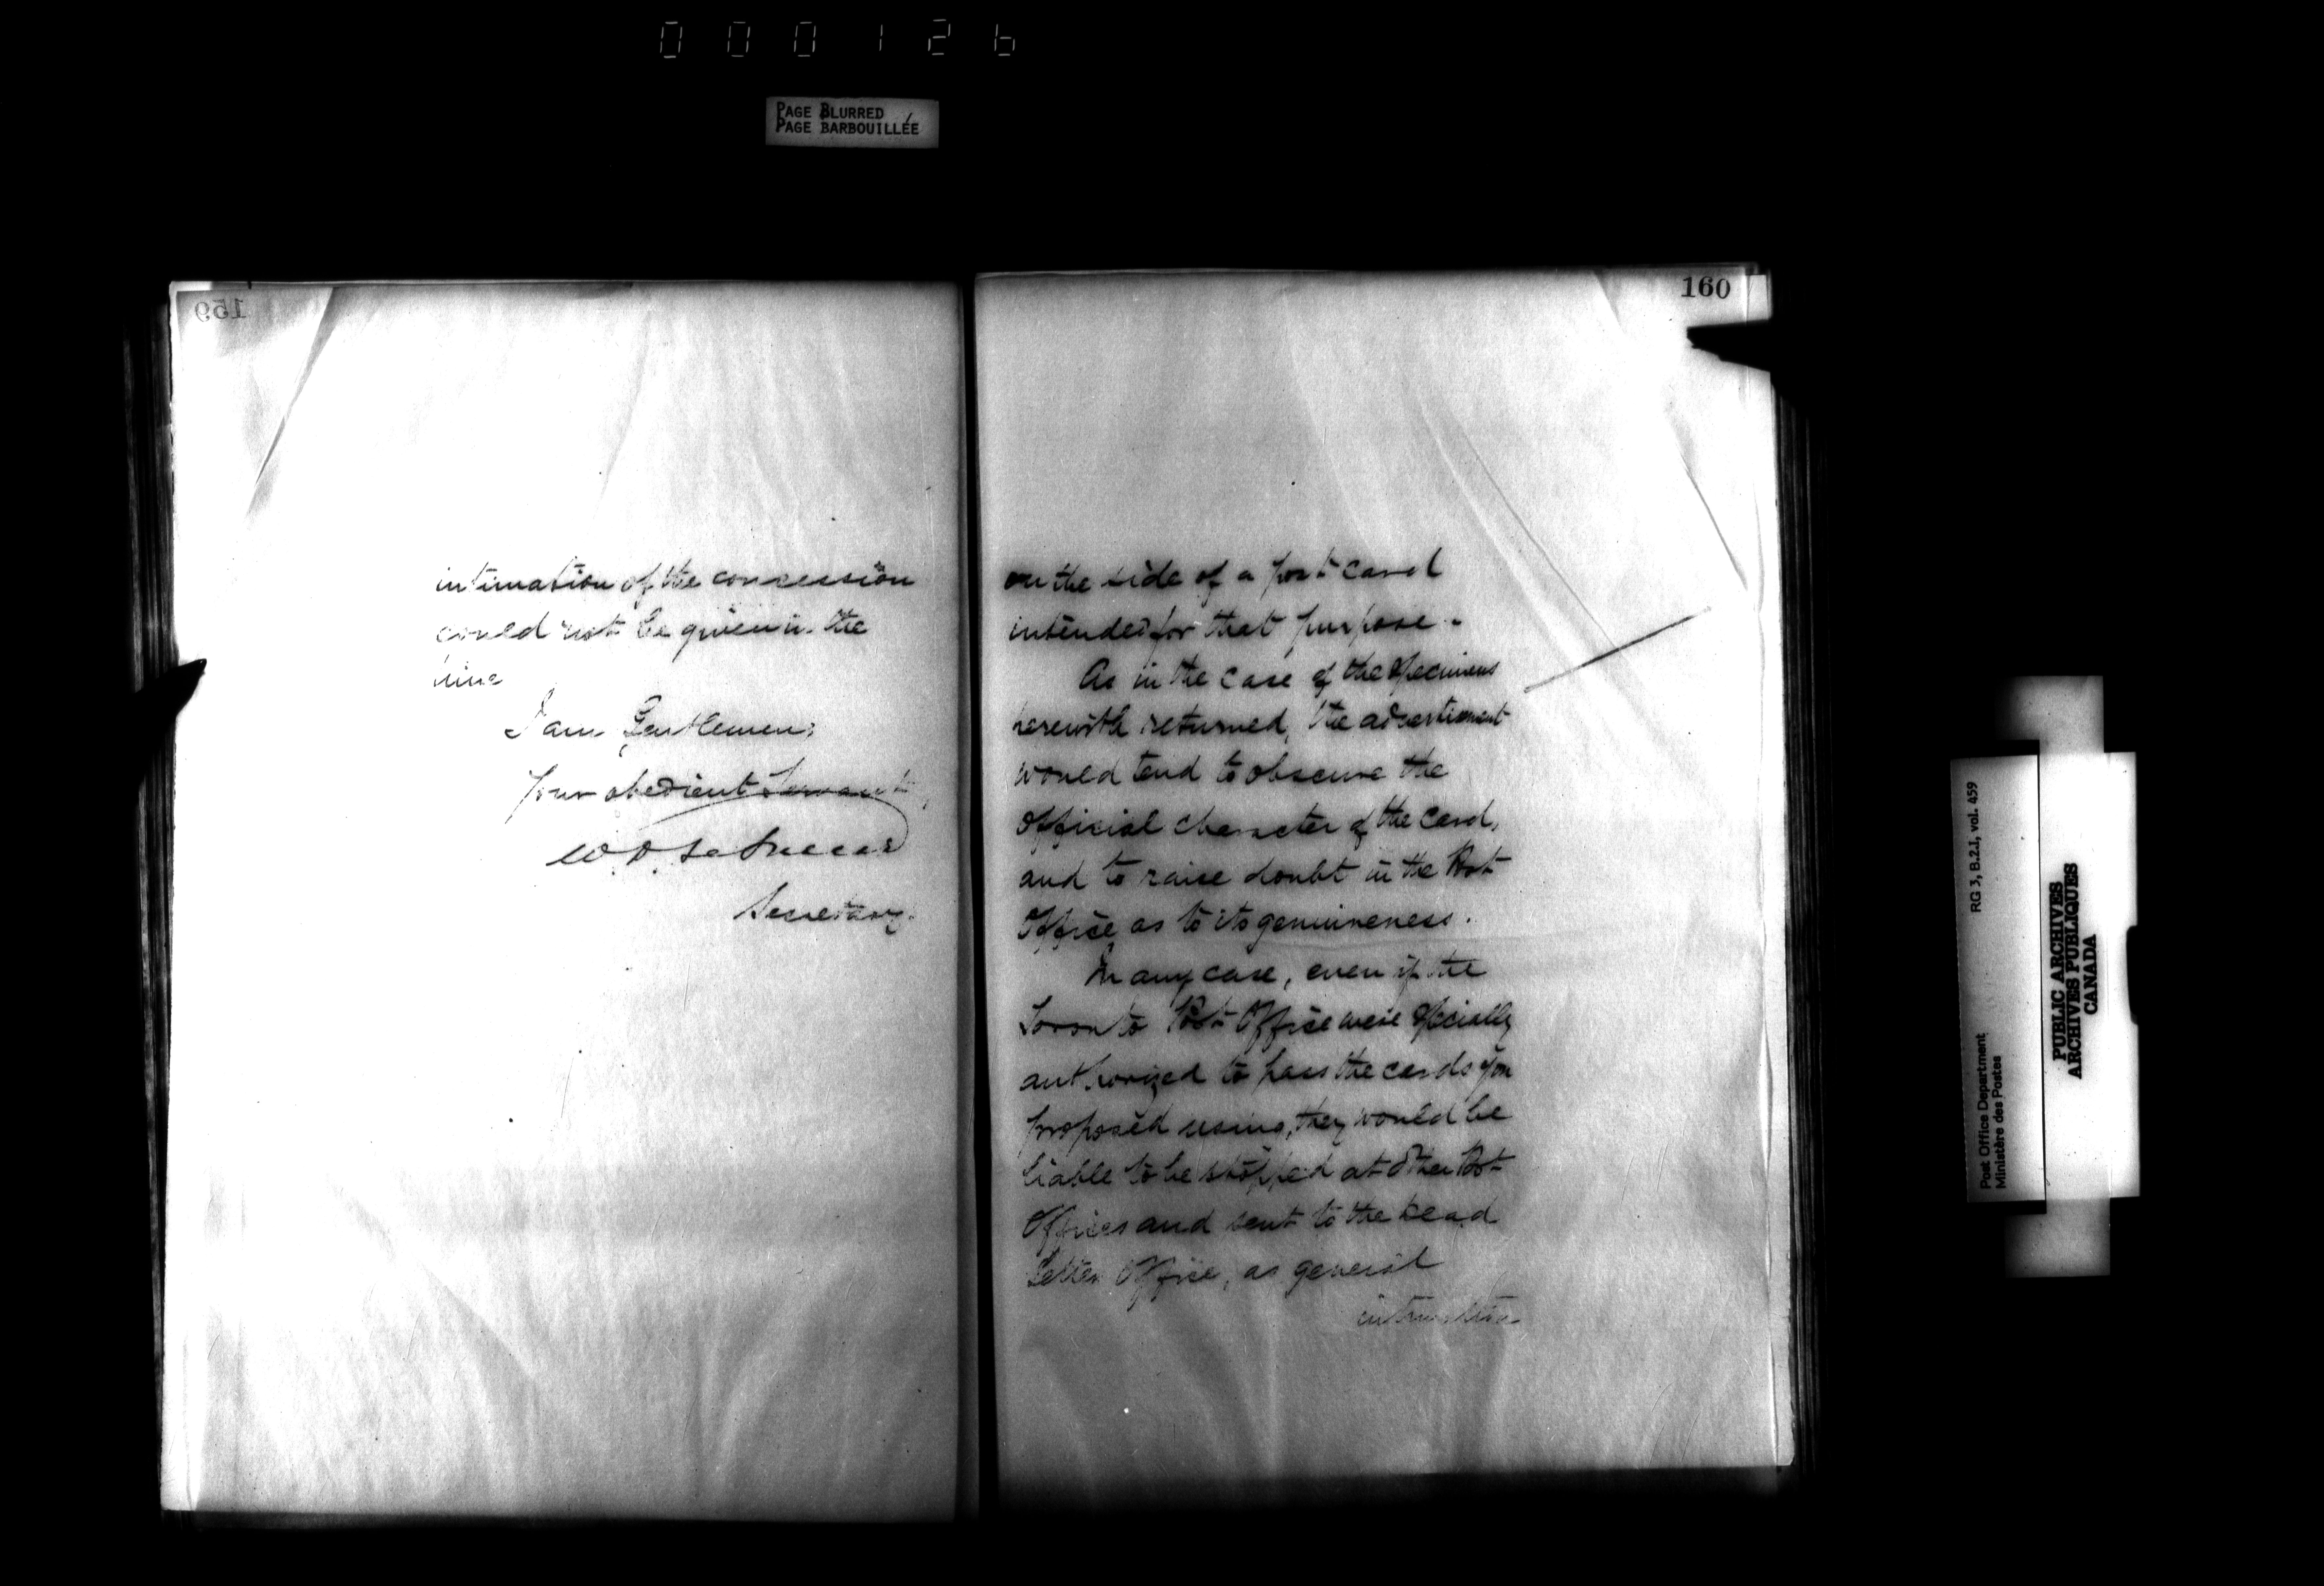 000126
PAGE BLURRED
PAGE BARBOUILLÉE
159
intimation of the concession
could not be given in the
I am Gentlemen;
Your obedient Servant,
Secretary.
160
on the side of a post card
intended for that purpose.-
As in the case of the specimens
herewith returned, the advertisement
would tend to obscure the
official character of the card,
and to raise doubt in the Post
Office as to its genuineness.
In any case, even if the
Toronto Post Office were specially
authorized to pass the cards you
proposed using, they would be
liable to be stopped at other Post
Offices and sent to the Dead
Letter Office, as general
intimation
RG 3, B.2.I, vol. 459
Post Office Department
Ministère des Postes
PUBLIC ARCHIVES
ARCHIVES PUBLIQUES
CANADA